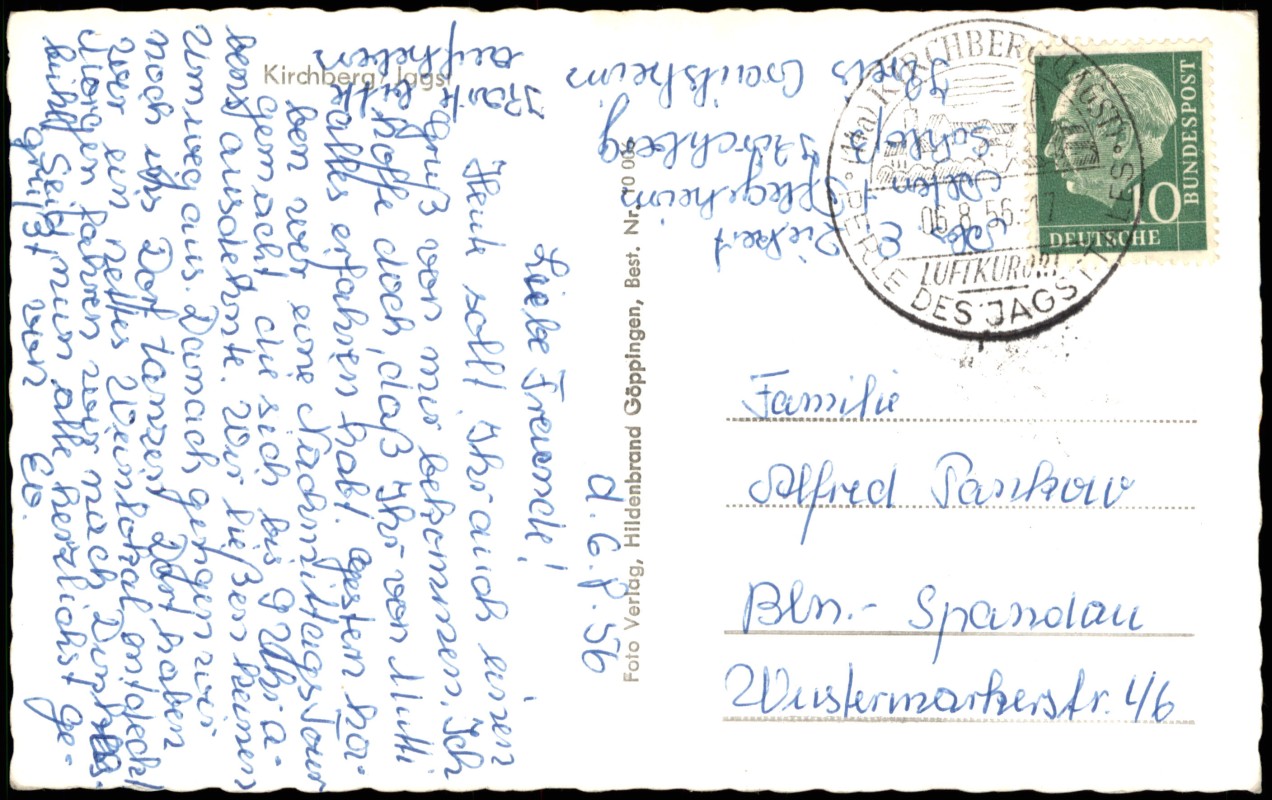 Kirchberg/Jagst
Karte bitte
aufheben
d. 6. 8. 56
Liebe Freunde!
Heute sollt Ihr auch einen
Gruß von mir bekommen. Ich
hoffe doch, daß Ihr von Mutti
alles erfahren habt. Gestern ha-
ben wir eine Nachmittagstour
gemacht die sich bis 9 Uhr a-
bens ausdehnte. Wir ließen keinen
Umweg aus. Danach gingen wir
noch ins Dorf tanzen. Dort haben
wir ein nettes Weinlokal entdeckt
Morgen fahren wir nach Dinkels-
bühl. Seid nun alle herzlichst ge-
grüßt von
Foto Verlag, Hildenbrand Göppingen, Best. Nr. 10 006
Alten + Pflegeheim
Schloß Kirchberg
Kreis Crailsheim
KIRCHBERG (JAGST)
06.8.56
LUFTKURORT
PERLE DES JAGSTTALES
10
DEUTSCHE
BUNDESPOST
Familie
Alfred Pankow
Bln.- Spandau
Wustermarkerstr. 4/6